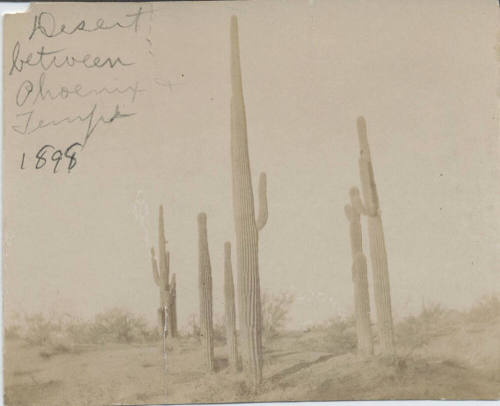 Desert
between
Phoenix +
Tempe
1898